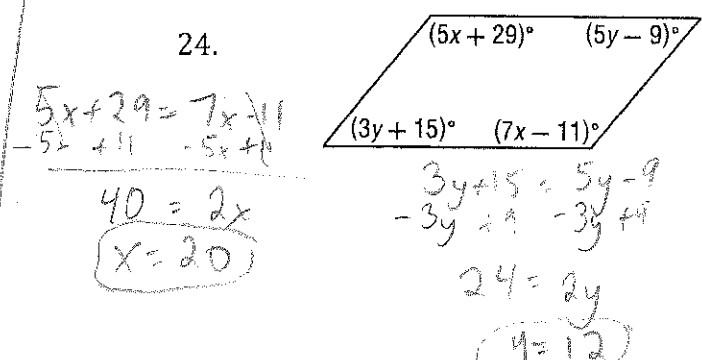 24.
(5x + 29)° (5y – 9)°
(3y + 15)° (7x – 11)°
5x+29 = 7x-11
-5x +11 -5x +11
40 = 2x
x = 20
3y+15 = 5y-9
-3y +9 -3y +9
24 = 2y
y = 12